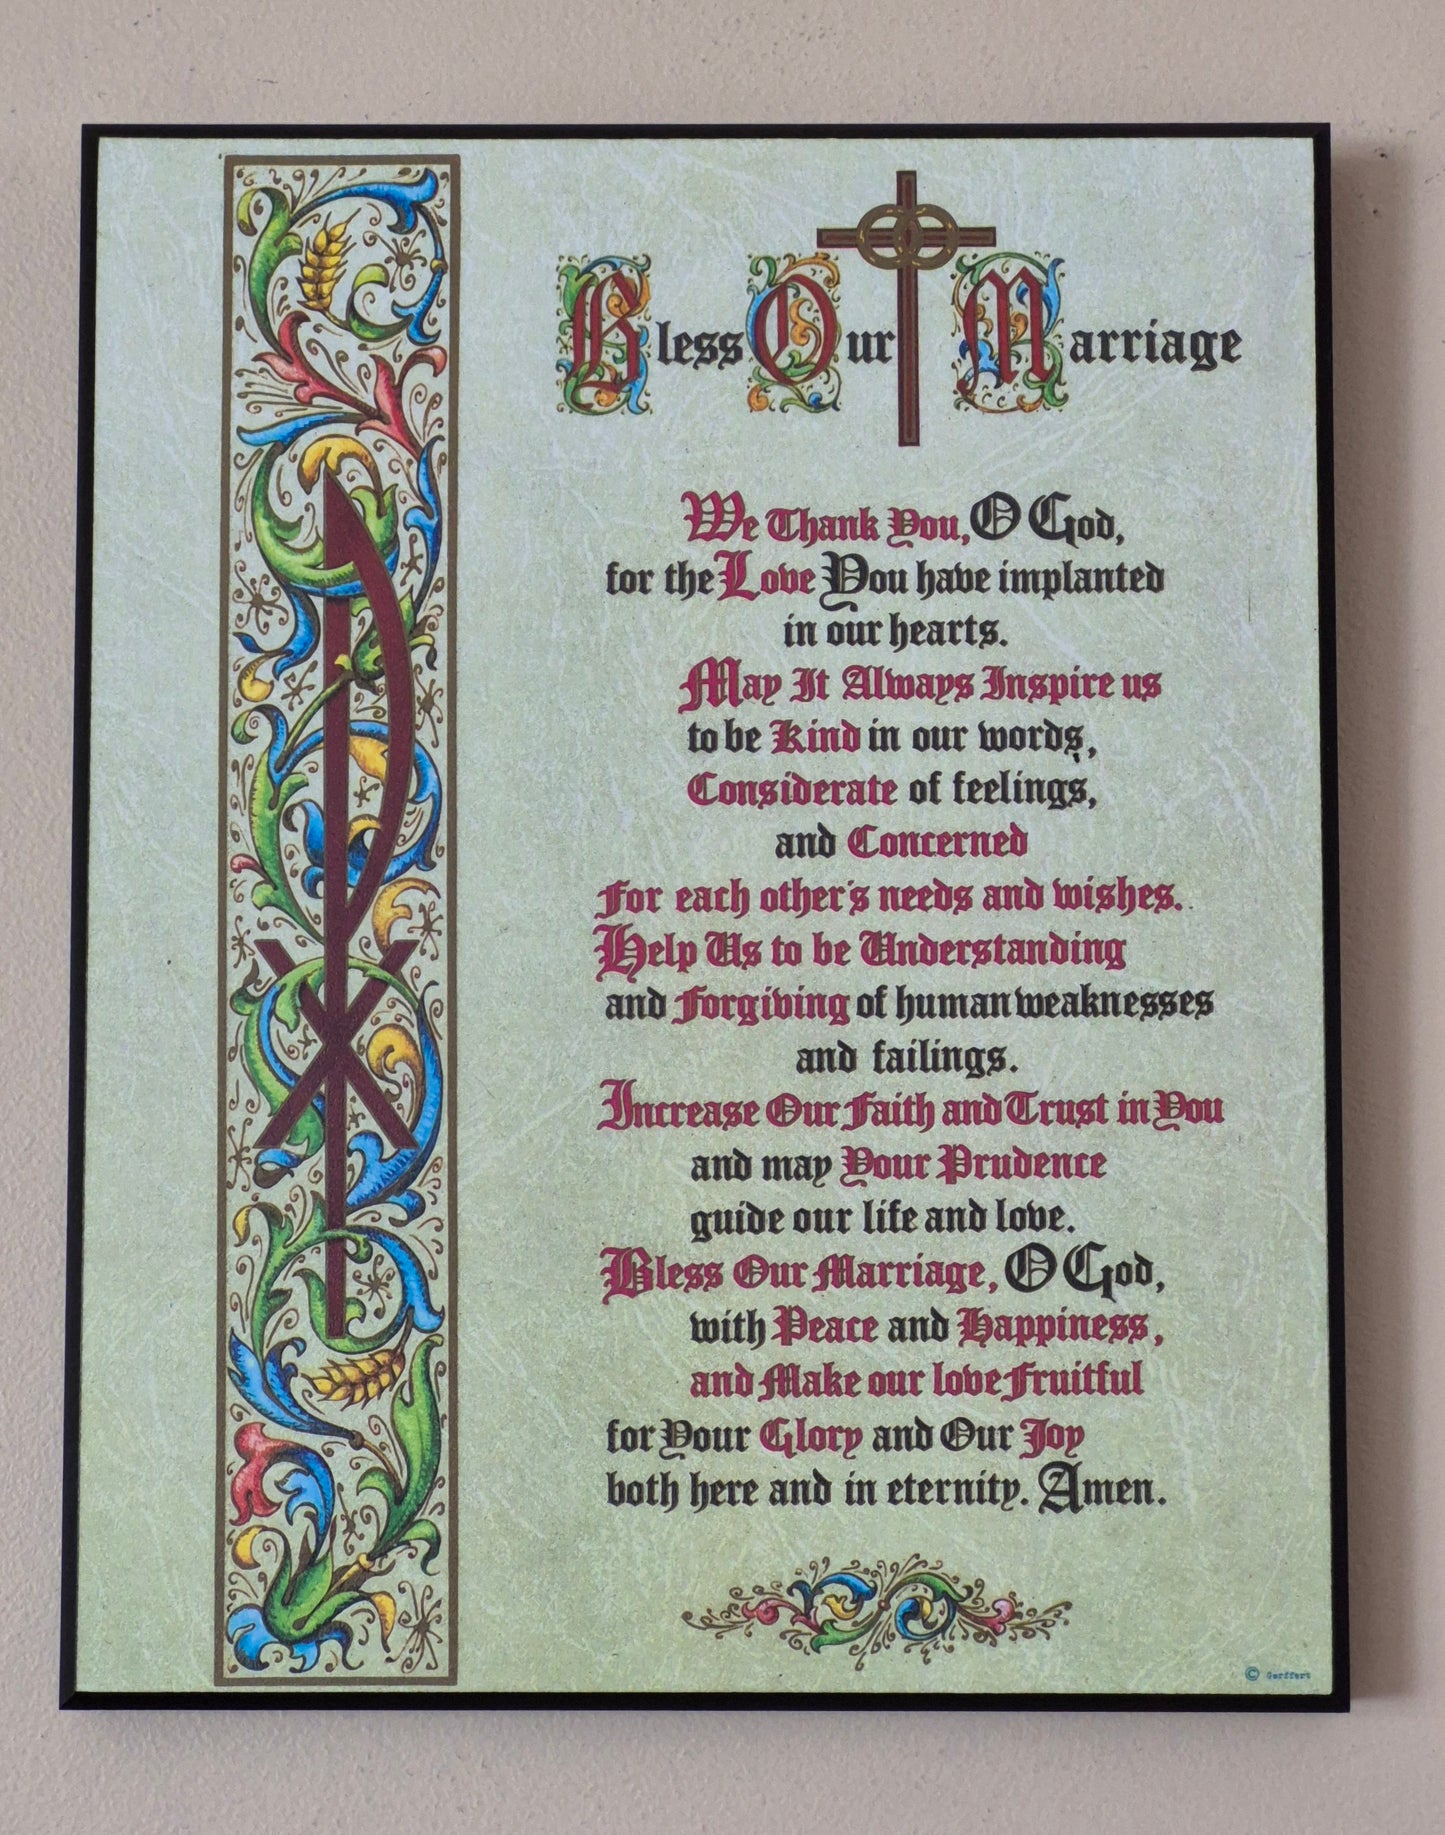 Bless Our Marriage
We Thank You, O God,
for the Love You have implanted
in our hearts.
May It Always Inspire us
to be Kind in our words,
Considerate of feelings,
and Concerned
For each other's needs and wishes.
Help Us to be Understanding
and Forgiving of human weaknesses
and failings.
Increase Our Faith and Trust in You
and may Your Prudence
guide our life and love.
Bless Our Marriage, O God,
with Peace and Happiness,
and Make our love Fruitful
for Your Glory and Our Joy
both here and in eternity. Amen.
© Gerffert